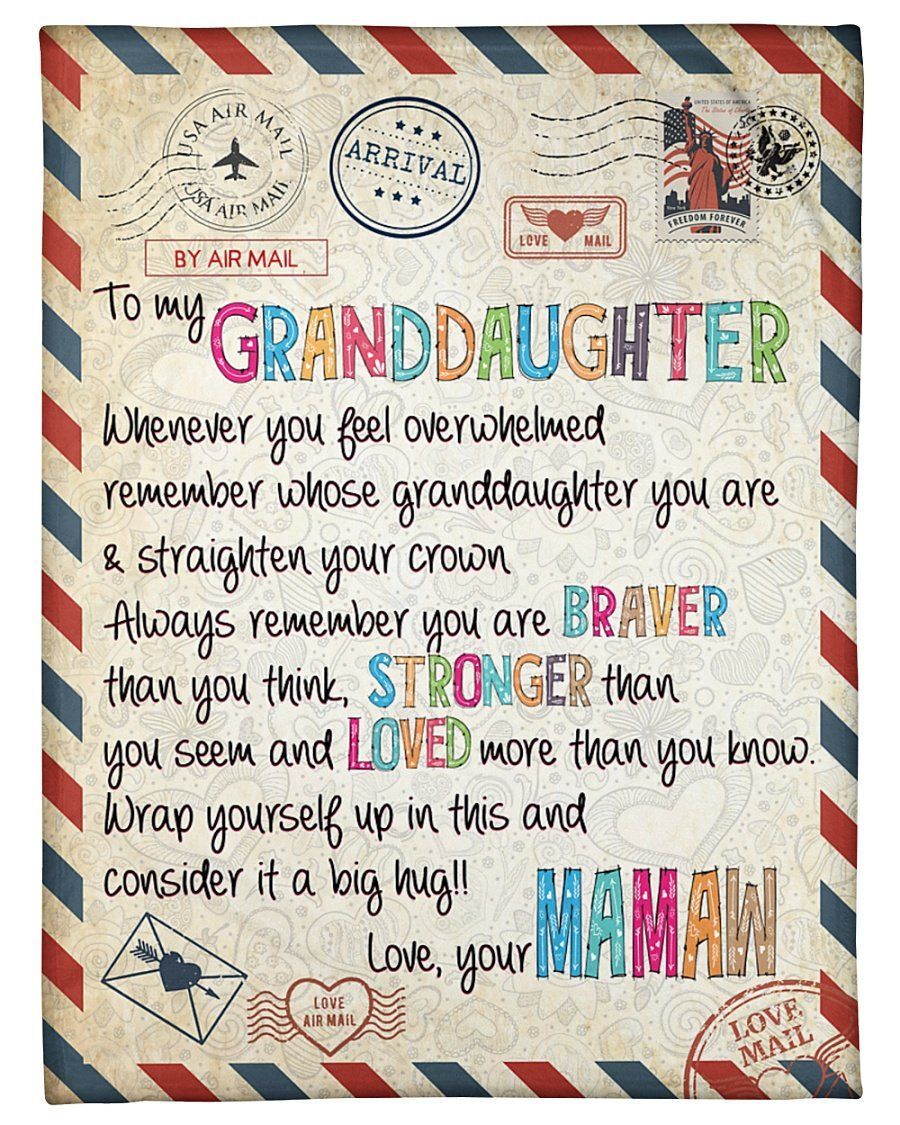 USA AIR MAIL
USA AIR MAIL
ARRIVAL
UNITED STATES OF AMERICA
The Statue of Liberty
New York
FREEDOM FOREVER
LOVE MAIL
BY AIR MAIL
To my GRANDDAUGHTER
Whenever you feel overwhelmed
remember whose granddaughter you are
& straighten your crown
Always remember you are BRAVER
than you think, STRONGER than
you seem and LOVED more than you know.
Wrap yourself up in this and
consider it a big hug!!
Love, your MAMAW
LOVE
AIR MAIL
LOVE
MAIL